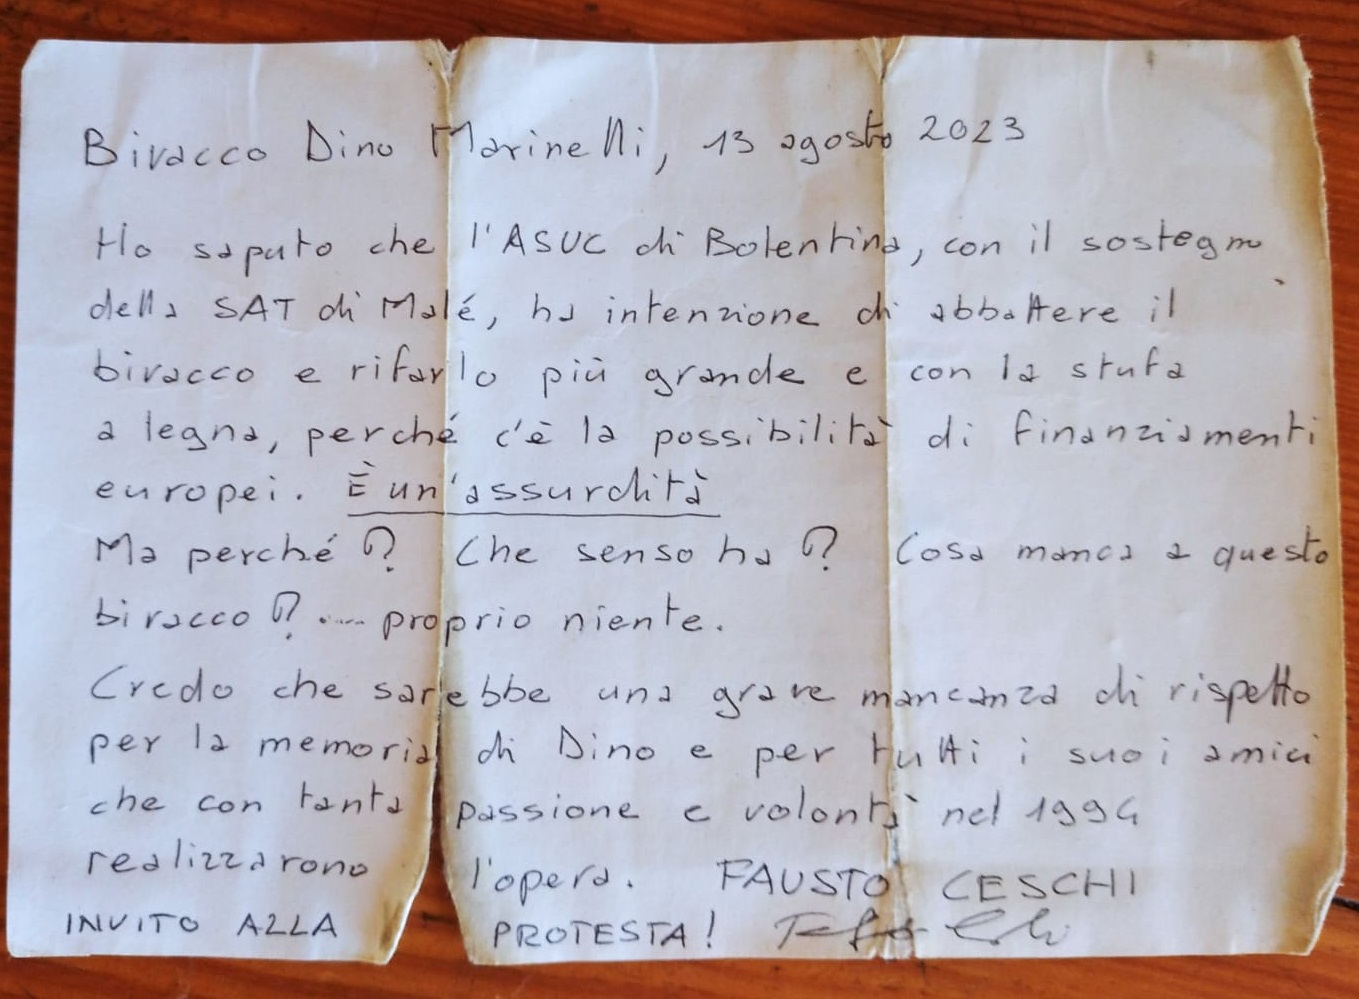 Bivacco Dino Marinelli, 13 agosto 2023
Ho saputo che l'ASUC di Bolentina, con il sostegno
della SAT di Malé, ha intenzione di abbattere il
bivacco e rifarlo più grande e con la stufa
a legna, perché c'è la possibilità di finanziamenti
europei. È un'assurdità
Ma perché? Che senso ha? Cosa manca a questo
bivacco? .... proprio niente.
Credo che sarebbe una grave mancanza di rispetto
per la memoria di Dino e per tutti i suoi amici
che con tanta passione e volontà nel 1994
realizzarono l'opera. FAUSTO CESCHI
INVITO ALLA PROTESTA!